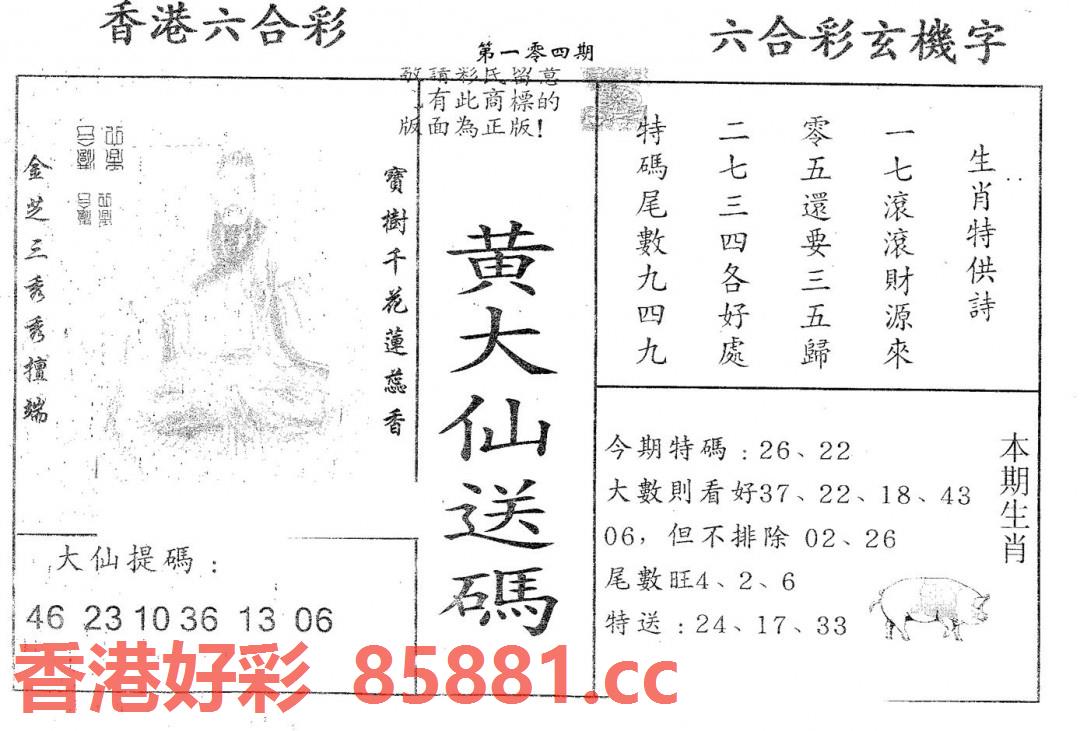 香港六合彩
第一零四期
六合彩玄機字
敬請彩民留意
有此商標的
版面為正版！
金芝三秀秀擅端
寶樹千花蓮蕊香
黃大仙送碼
生肖特供詩
一七滾滾財源來
零五還要三五歸
二七三四各好處
特碼尾數九四九
本期生肖
今期特碼：26、22
大數則看好37、22、18、43
06，但不排除 02、26
尾數旺4、2、6
特送：24、17、33
大仙提碼：
46 23 10 36 13 06
香港好彩 85881.cc